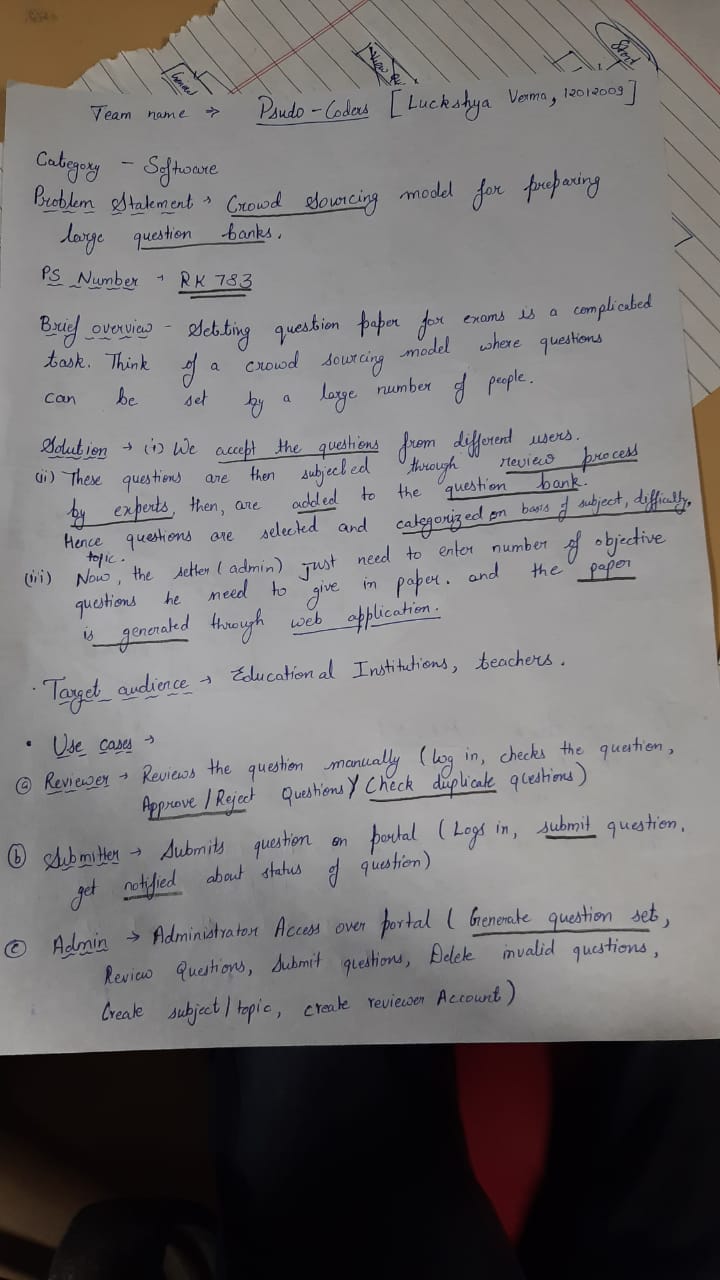 Start
Team name ⇒ Psudo-Coders [Luckshya Verma, 12012009]
Category - Software
Problem Statement → Crowd Sourcing model for preparing
large question banks.
PS Number → RK 783
Brief overview - Setting question paper for exams is a complicated
task. Think of a crowd sourcing model where questions
can be set by a large number of people.
Solution → (i) We accept the questions from different users.
(ii) These questions are then subjected through review process
by experts, then, are added to the question bank.
Hence questions are selected and categorized on basis of subject, difficulty,
topic.
(iii) Now, the setter (admin) just need to enter number of objective
questions he need to give in paper. and the paper
is generated through web application.
· Target audience → Educational Institutions, teachers.
• Use cases →
ⓐ Reviewer → Reviews the question manually (log in, checks the question,
Approve / Reject Questions / Check duplicate questions)
ⓑ Submitter → Submits question on portal (Logs in, submit question,
get notified about status of question)
ⓒ Admin → Administrator Access over portal (Generate question set,
Review Questions, Submit questions, Delete invalid questions,
Create subject / topic, create reviewer Account)